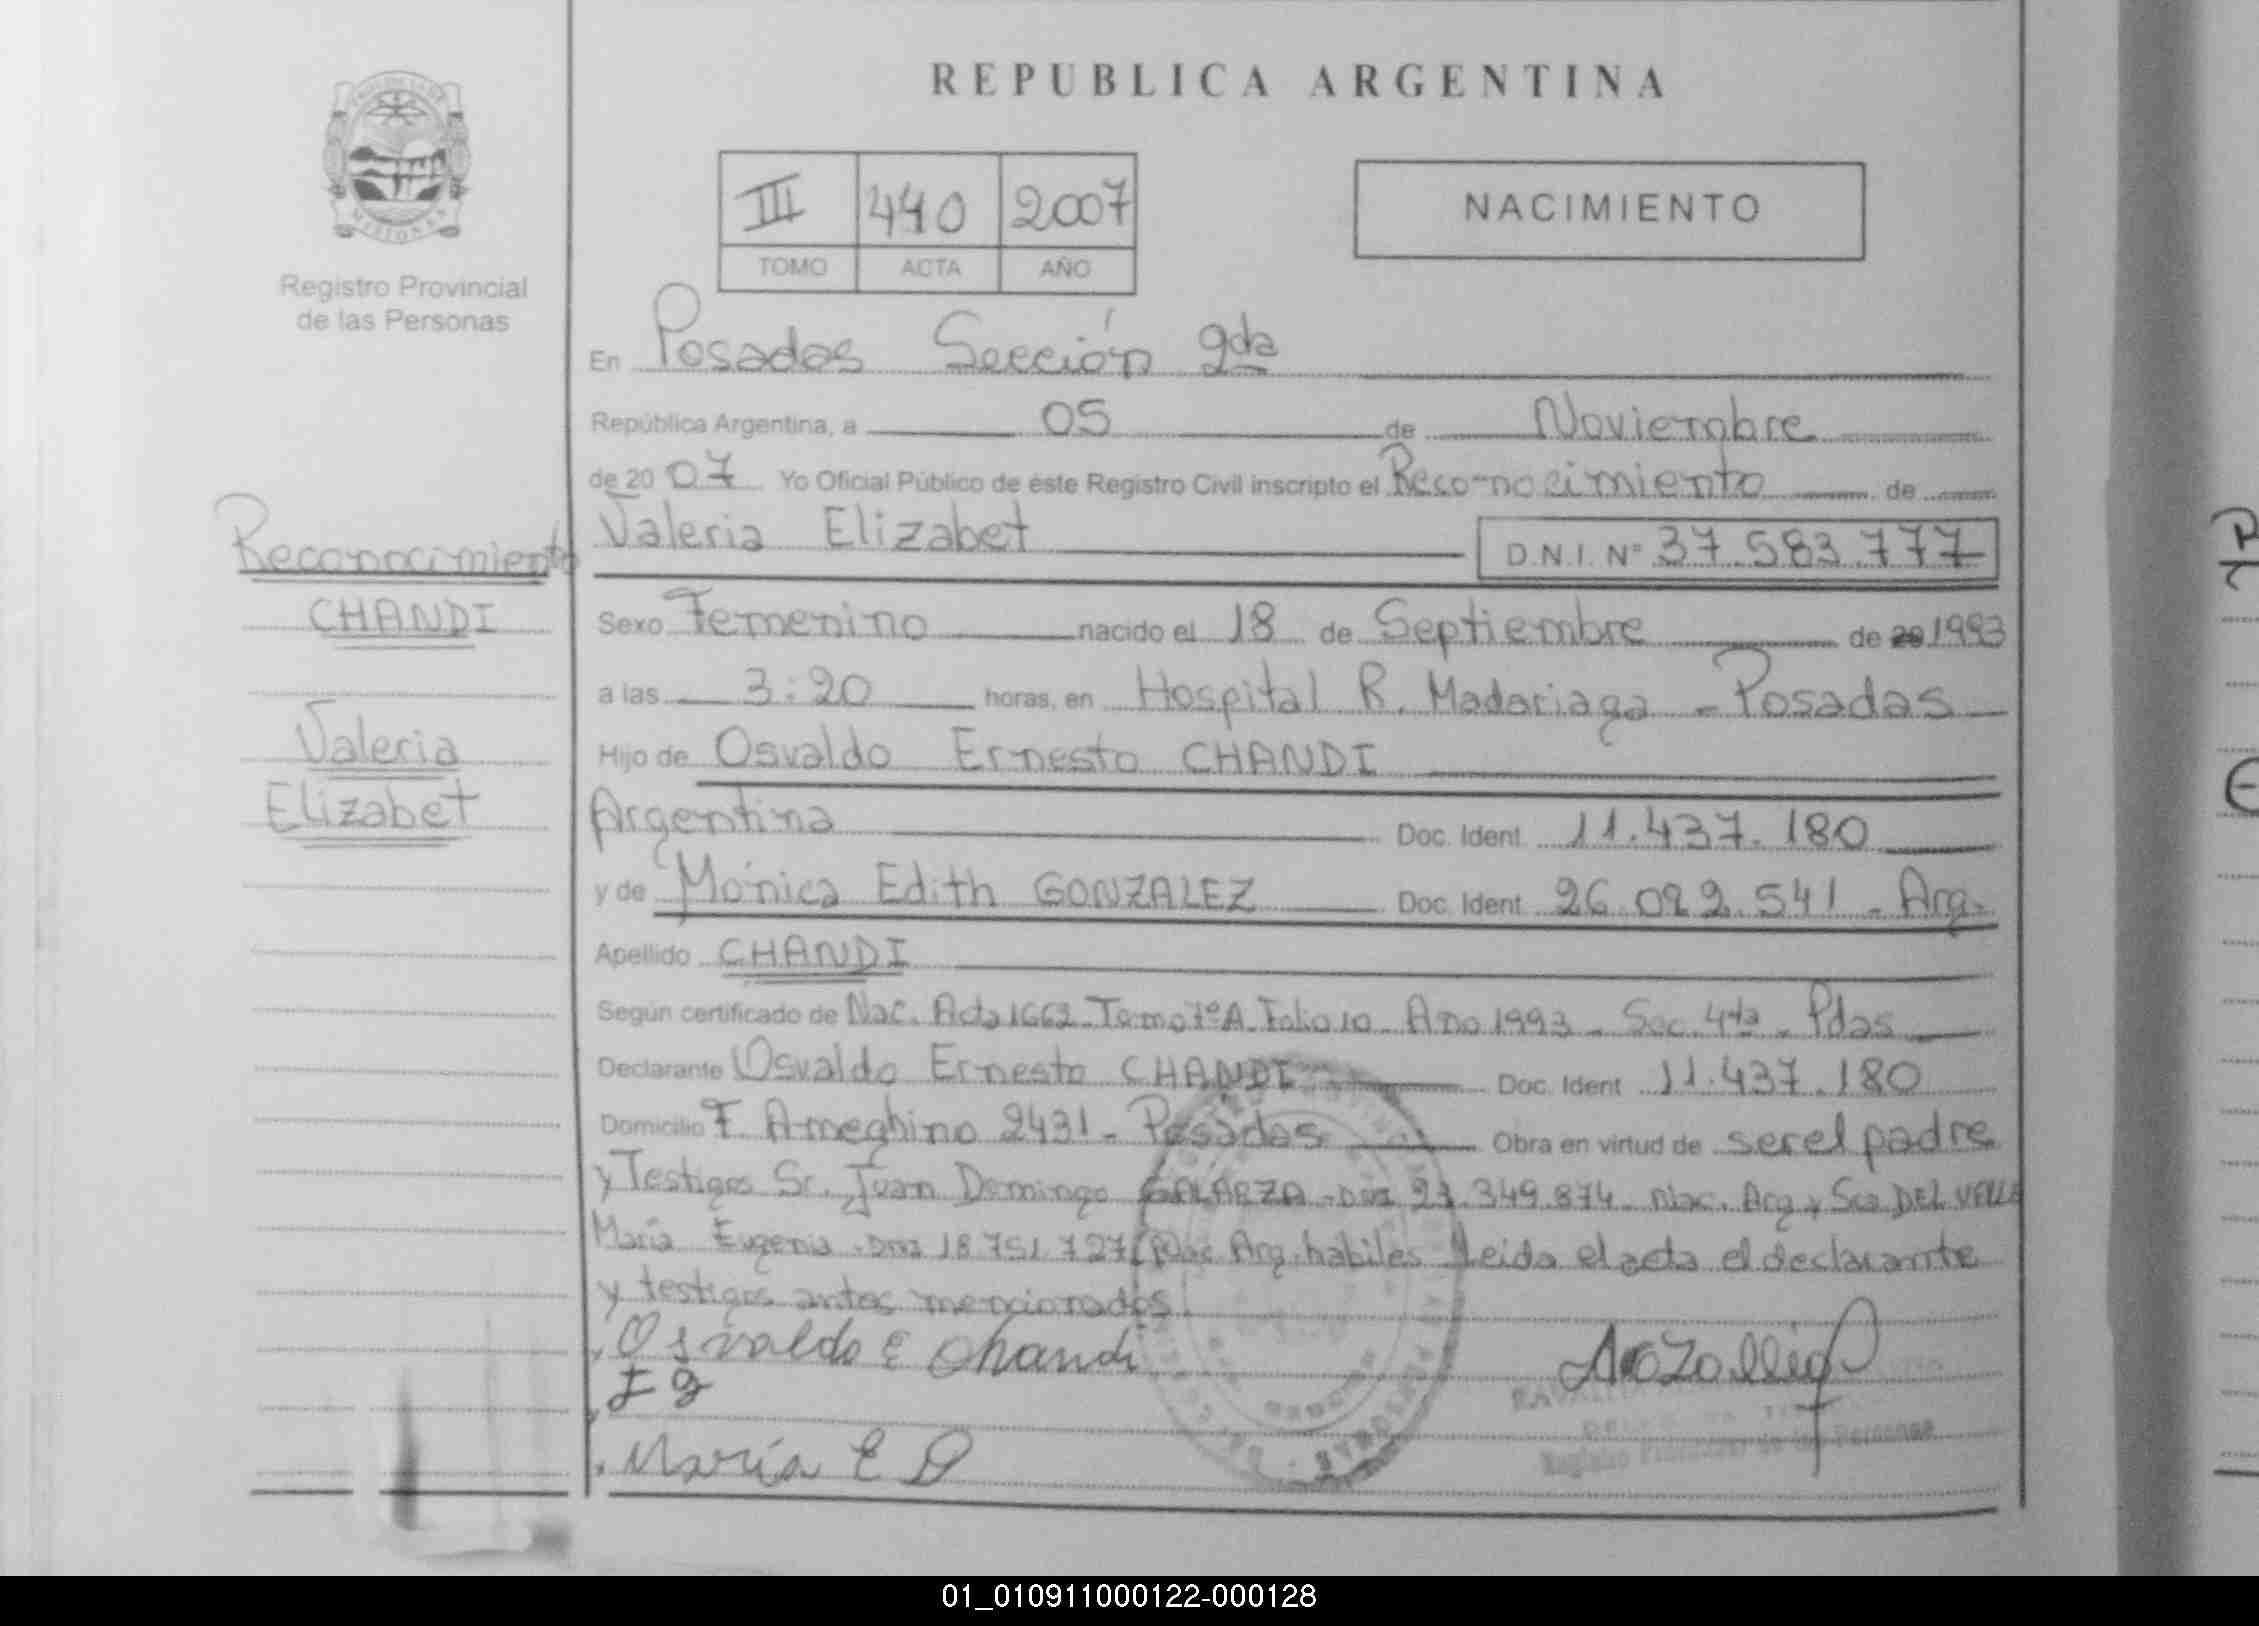 REPUBLICA ARGENTINA
PROVINCIA DE
MISIONES
Registro Provincial
de las Personas
III 440 2007
TOMO ACTA AÑO
NACIMIENTO
En Posadas Sección 2da
República Argentina, a 05 de Noviembre
de 2007 Yo Oficial Público de éste Registro Civil inscripto el Reconocimiento de
Valeria Elizabet D.N.I. Nº 37.583.777
Reconocimiento
CHANDI
Valeria
Elizabet
Sexo Femenino nacido el 18 de Septiembre de 20 1993
a las 3:20 horas, en Hospital R. Madariaga - Posadas
Hijo de Osvaldo Ernesto CHANDI
Argentina Doc. Ident. 11.437.180
y de Mónica Edith GONZALEZ Doc. Ident. 26.022.541 - Arg.
Apellido CHANDI
Según certificado de Nac. Acta 1662 Tomo 1º A Folio 10 - Año 1993 - Sec. 4ta - Pdas
Declarante Osvaldo Ernesto CHANDI Doc. Ident. 11.437.180
Domicilio F. Ameghino 2431 - Posadas Obra en virtud de ser el padre
y Testigos Sr. Juan Domingo GALARZA - DNI 21.349.874 - Nac. Arg y Sra DEL VALLE
María Eugenia - DNI 18 751 727 Nac Arg. habiles Leida el acta el declarante
y testigos antes mencionados
Osvaldo E Chandi
María E D
Registro Provincial de las Personas
01_010911000122-000128